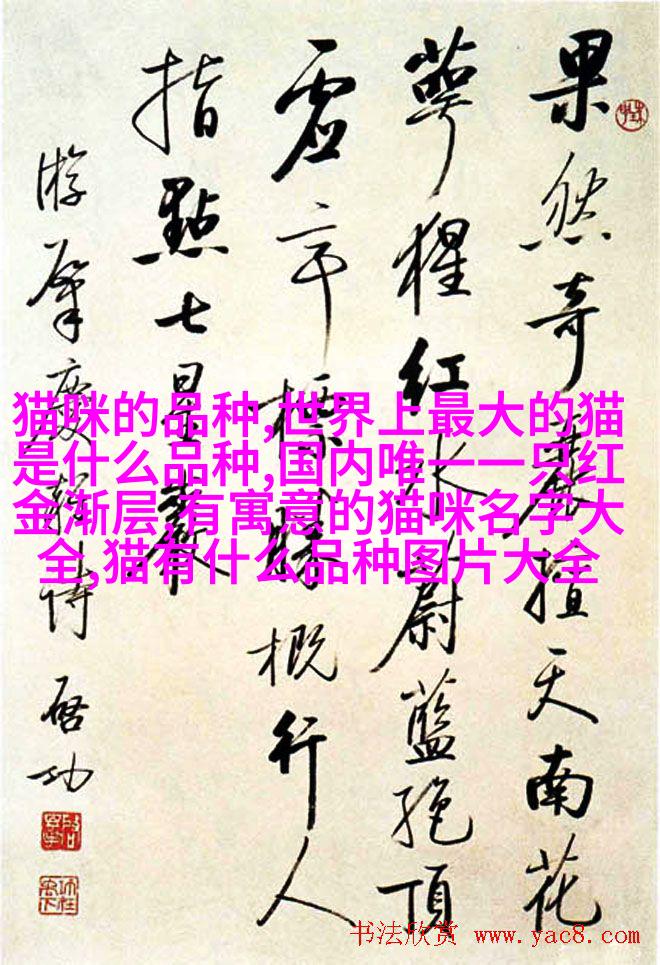 果然奇麗擅天南花
萼猩红水蔚藍絶頂
虚亭標勝概行人
指點七星巖
游肇慶 啓功
猫咪的品种,世界上最大的猫
是什么品种,国内唯一一只红
金渐层,有寓意的猫咪名字大
全,猫有什么品种图片大全
书法欣赏 www.yac8.com